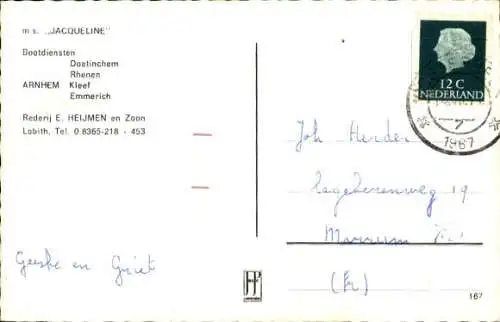 m s. „JACQUELINE"
Bootdiensten
Doetinchem
Rhenen
ARNHEM Kleef
Emmerich
Rederij E. HEIJMEN en Zoon
Lobith. Tel. 0 8365-218 - 453
12 C
NEDERLAND
1967
Joh Herder
19
Marrum
(Fr.)
Geeske en Griet
167